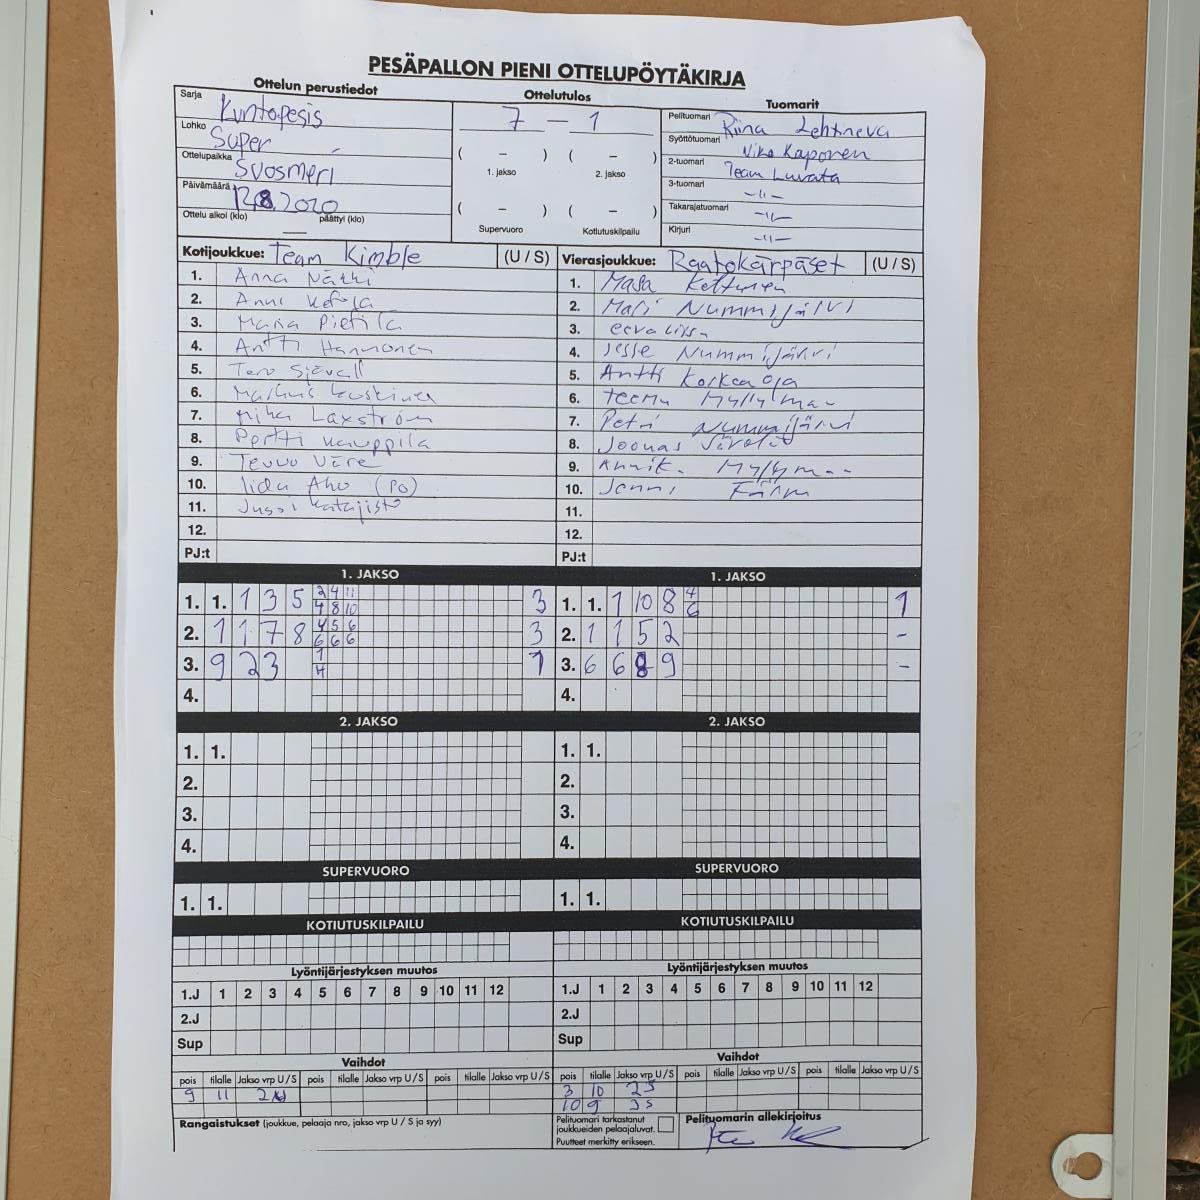 PESÄPALLON PIENI OTTELUPÖYTÄKIRJA
Ottelun perustiedot
Sarja Kuntopesis
Lohko Super
Ottelupaikka Suosmeri
Päivämäärä 12.8.2020
Ottelu alkoi (klo) päättyi (klo)
Ottelutulos
7 – 1
( – ) ( – )
1. jakso 2. jakso
( – ) ( – )
Supervuoro Kotiutuskilpailu
Tuomarit
Pelituomari Riina Lehtineva
Syöttötuomari Niko Kaponen
2-tuomari Team Luvata
3-tuomari -"-
Takarajatuomari -"-
Kirjuri -"-
Kotijoukkue: Team Kimble (U / S)
1. Anna Nätki
2. Anni Ketola
3. Maria Pietilä
4. Antti Hannonen
5. Tero Sjävall
6. Markus Koskinen
7. Mika Laxström
8. Pertti Kauppila
9. Teuvo Väre
10. Iida Aho (PO)
11. Jussi Katajisto
12.
PJ:t
Vierasjoukkue: Raatokärpäset (U / S)
1. Masa Keltunen
2. Mari Nummijärvi
3. eevaliisa
4. Jesse Nummijärvi
5. Antti Korkeaoja
6. Teemu
7. Petri Nummijärvi
8. Joonas
9.
10. Jenni Färm
11.
12.
PJ:t
1. JAKSO
1. 1. 1 3 5 2 4 11 3
4 8 10
2. 1 1 7 8 4 5 6 3
6 6 6
3. 9 2 3 1 1
4
4.
1. JAKSO
1. 1. 1 10 8 4 1
6
2. 1 1 5 2 -
3. 6 6 8 9 -
4.
2. JAKSO
1. 1.
2.
3.
4.
2. JAKSO
1. 1.
2.
3.
4.
SUPERVUORO
1. 1.
SUPERVUORO
1. 1.
KOTIUTUSKILPAILU
KOTIUTUSKILPAILU
Lyöntijärjestyksen muutos
1.J 1 2 3 4 5 6 7 8 9 10 11 12
2.J
Sup
Lyöntijärjestyksen muutos
1.J 1 2 3 4 5 6 7 8 9 10 11 12
2.J
Sup
Vaihdot
pois tilalle Jakso vrp U / S pois tilalle Jakso vrp U / S pois tilalle Jakso vrp U / S
9 11
Vaihdot
pois tilalle Jakso vrp U / S pois tilalle Jakso vrp U / S pois tilalle Jakso vrp U / S
3 10 2S
10 9 3S
Rangaistukset (joukkue, pelaaja nro, jakso vrp U / S ja syy)
Pelituomari tarkastanut
joukkueiden pelaajaluvat.
Puutteet merkitty erikseen.
Pelituomarin allekirjoitus